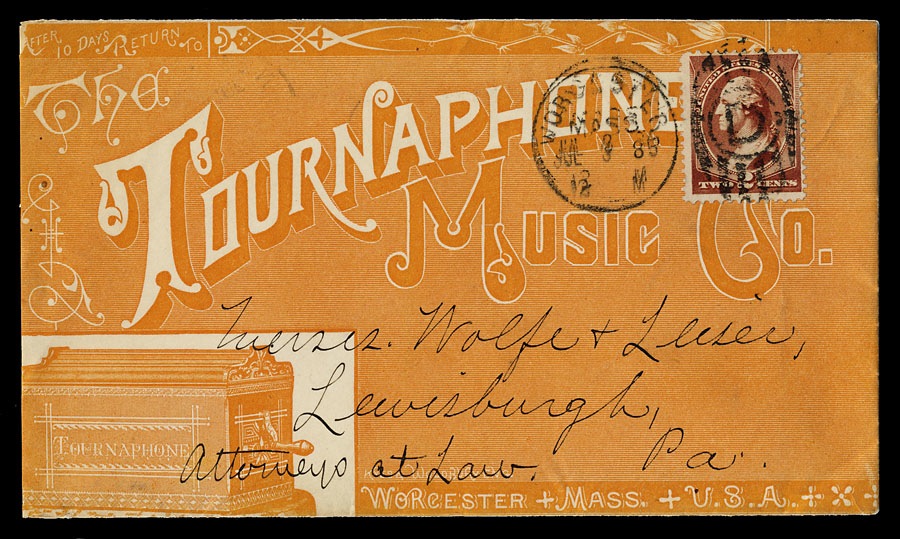 AFTER 10 DAYS RETURN TO
The
TOURNAPHONE
MUSIC CO.
WORCESTER
MASS.
JUL 3 86
12 M
UNITED STATES POSTAGE
TWO 2 CENTS
Messrs. Wolfe & Leiser,
Lewisburgh,
Attorneys at Law. Pa.
TOURNAPHONE
WORCESTER + MASS. + U.S.A.